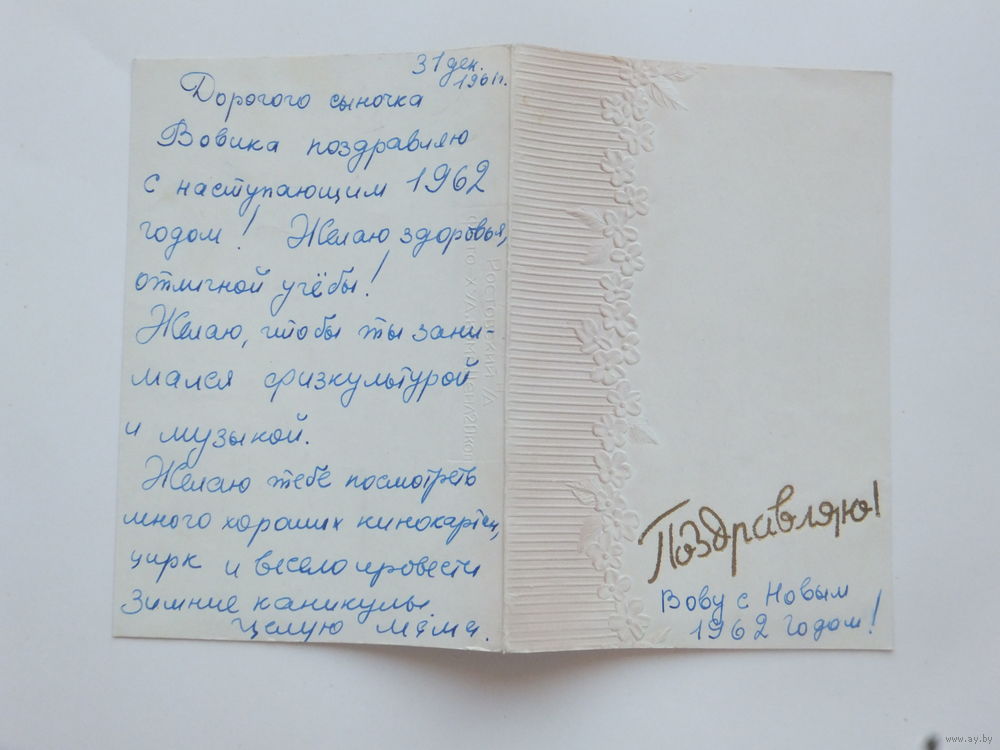 31 дек.
1961г.
Дорогого сыночка
Вовика поздравляю
с наступающим 1962
годом! Желаю здоровья,
отличной учёбы!
Желаю, чтобы ты зани-
мался физкультурой
и музыкой.
Желаю тебе посмотреть
много хороших кинокартин,
цирк и весело провести
зимние каникулы.
Целую мама.
Поздравляю!
Вову с Новым
1962 годом!
Ростовский
www.ay.by